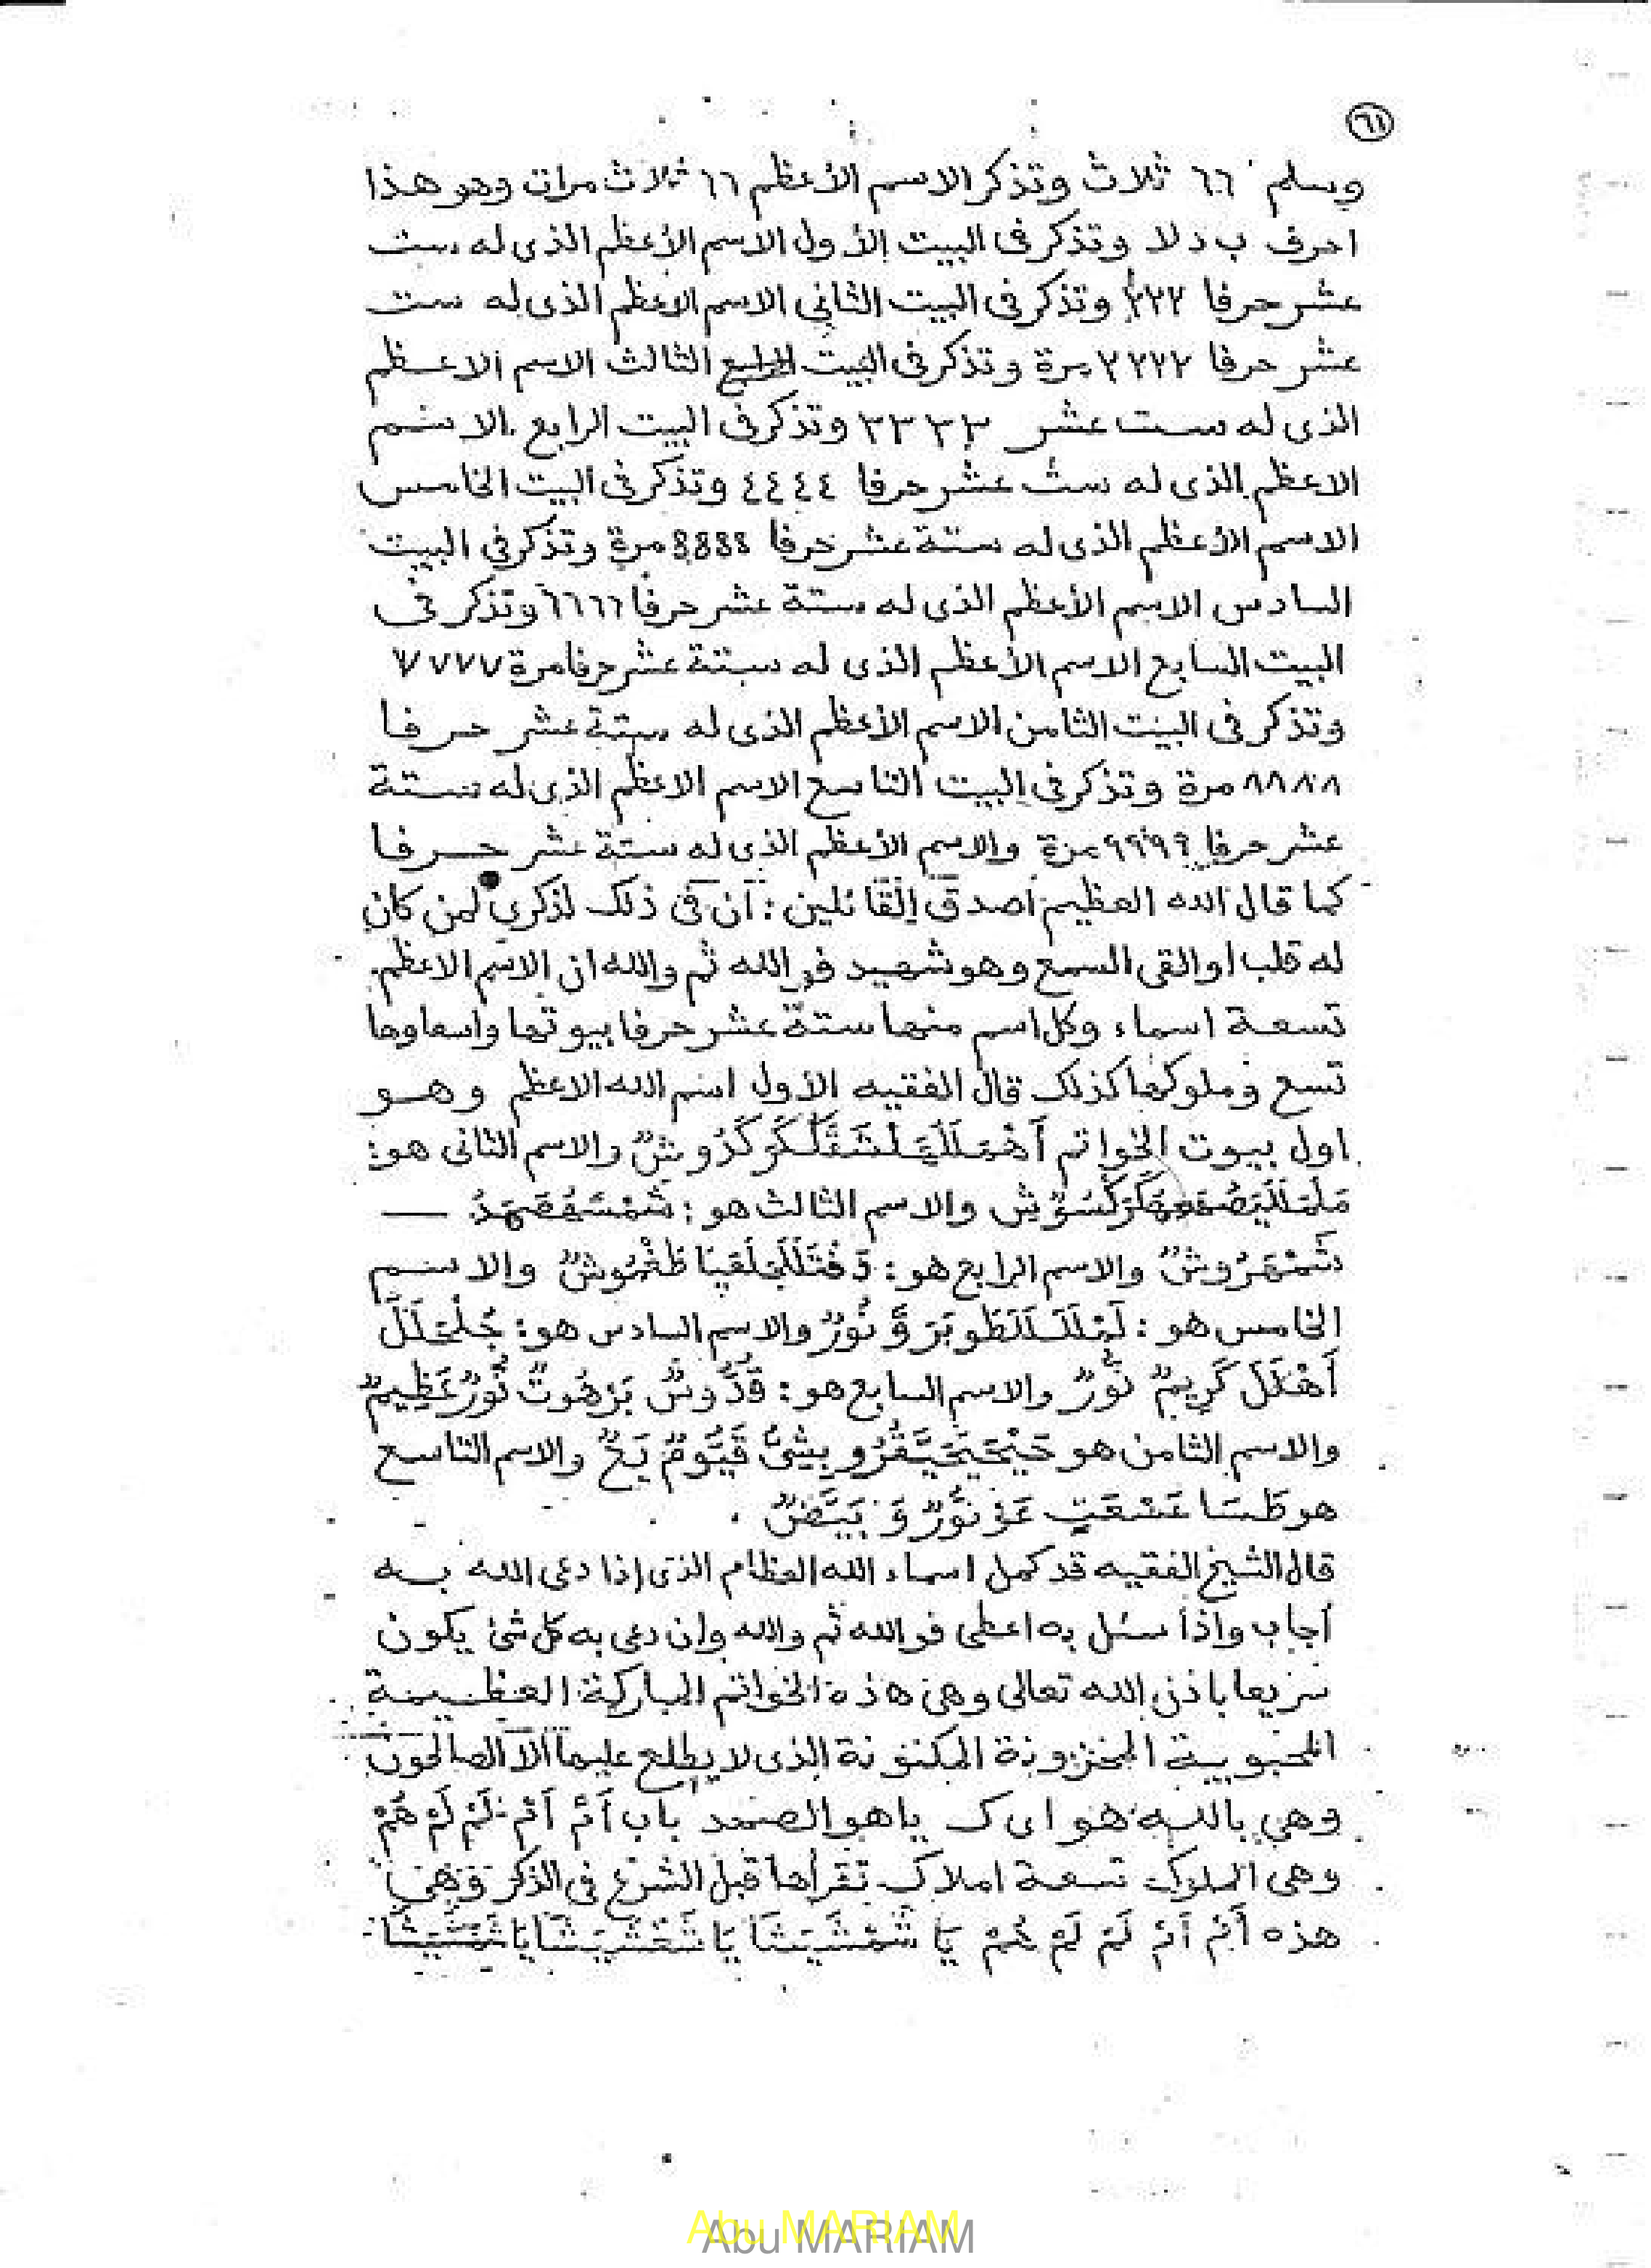 ٦١
وسلم ٦٦ ثلاث وتذكر الاسم الأعظم ٦٦ ثلاث مرات وهو هذا
احرف ب د لا وتذكر فى البيت الأول الاسم الأعظم الذى له ست
عشر حرفا وتذكر فى البيت الثاني الاسم الاعظم الذى له ست
عشر حرفا ٢٢٢٢ مرة وتذكر فى البيت الثالث الاسم الاعظم
الذى له ست عشر ٣٣٣٣ وتذكر فى البيت الرابع الاسم
الاعظم الذى له ست عشر حرفا ٤٤٤٤ وتذكر فى البيت الخامس
الاسم الأعظم الذى له ستة عشر حرفا مرة وتذكر في البيت
السادس الاسم الأعظم الذى له ستة عشر حرفا ٦٦٦٦ وتذكر فى
البيت السابع الاسم الأعظم الذى له ستة عشر حرفا مرة ٧٧٧٧
وتذكر فى البيت الثامن الاسم الأعظم الذى له ستة عشر حرفا
٨٨٨٨ مرة وتذكر فى البيت التاسع الاسم الاعظم الذى له ستة
عشر حرفا ٩٩٩٩ مرة والاسم الأعظم الذى له ستة عشر حرفا
كما قال الله العظيم أصدق القائلين : ان فى ذلك لذكرى لمن كان
له قلب او القى السمع وهو شهيد فو الله ثم والله ان الاسم الاعظم
تسعة اسماء وكل اسم منها ستة عشر حرفا بيوتها واسماوها
تسع وملوكها كذلك قال الفقيه الأول اسم الله الاعظم وهو
اول بيوت الخواتم والاسم الثانى هو :
والاسم الثالث هو :
والاسم الرابع هو : والاسم
الخامس هو : نُورٌ والاسم السادس هو :
كَرِيمٌ نُورٌ والاسم السابع هو : قُدُّوسٌ بَرْهُوتٌ نُورٌ عَظِيمٌ
والاسم الثامن هو قَيُّومٌ والاسم التاسع
هو
قال الشيخ الفقيه قد كمل اسماء الله العظام الذى اذا دعى الله به
أجاب واذا سئل به اعطى فو الله ثم والله وان دعى به كل شئ يكون
سريعا باذن الله تعالى وهى هذه الخواتم المباركة العظيمة
المخزونة المكنونة الذى لا يطلع عليها الا الصالحون
وهى بالله هو اى ك ياهو الصمد باب أَمْ أَمْ لَمْ لَمْ هَمْ
وهى الملوك تسعة املاك تقرأها قبل الشرع فى الذكر وهى
هذه أَمْ أَمْ لَمْ لَمْ هَمْ يَا
Abu MARIAM